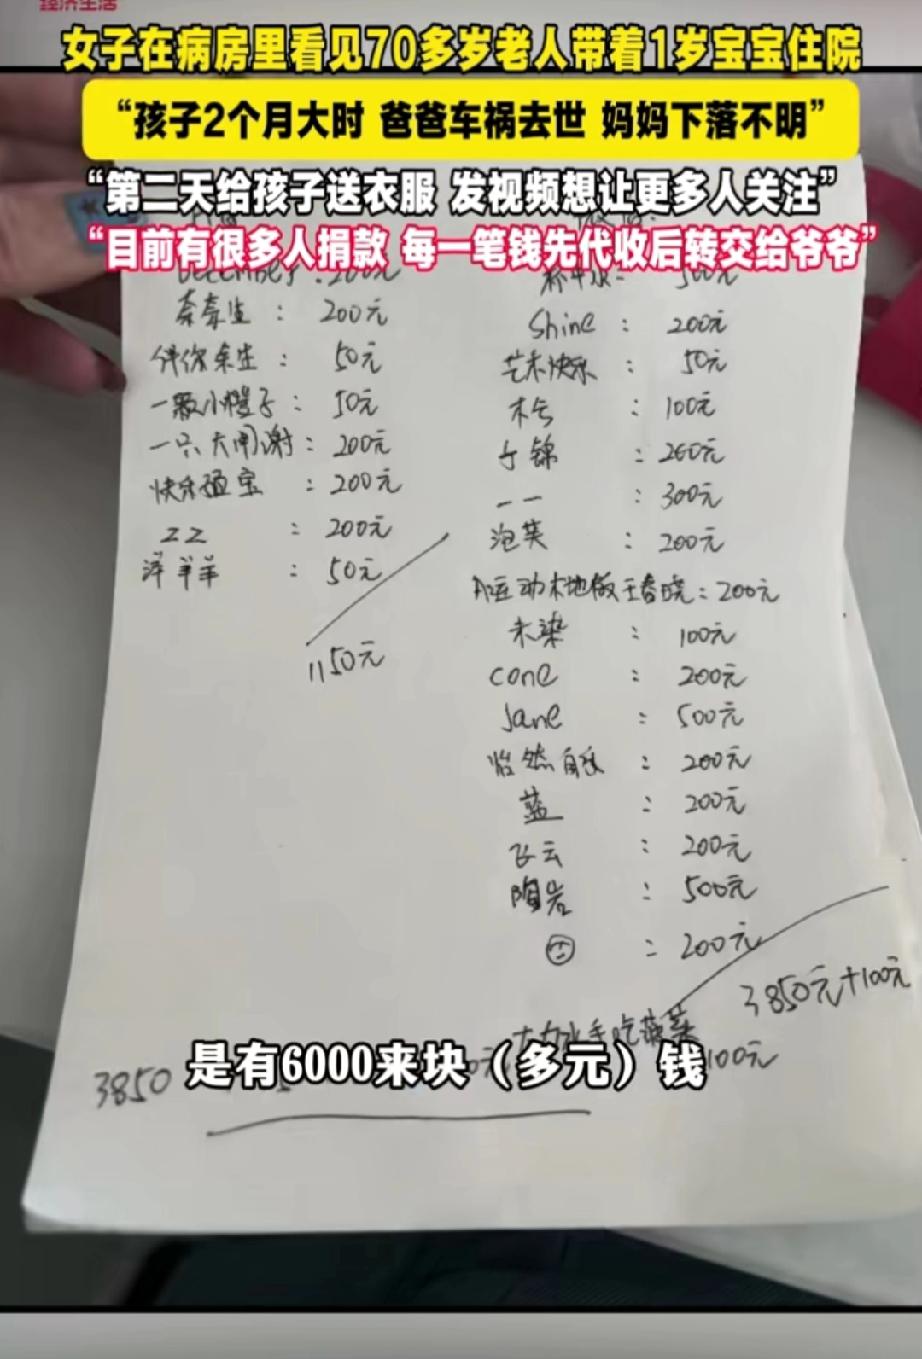 经济生活
女子在病房里看见70多岁老人带着1岁宝宝住院
“孩子2个月大时 爸爸车祸去世 妈妈下落不明”
“第二天给孩子送衣服 发视频想让更多人关注”
“目前有很多人捐款 每一笔钱先代收后转交给爷爷”
December : 200元
: 200元
伴你余生 : 50元
一颗小橙子 : 50元
一只大闸谢 : 200元
快乐 宝 : 200元
ZZ : 200元
洋羊羊 : 50元
1150元
500元
Shine : 200元
艺术快乐 : 50元
: 100元
锦 : 200元
一一 : 300元
泡芙 : 200元
运动木地板王春晓 : 200元
未染 : 100元
cone : 200元
Jane : 500元
怡然自 : 200元
蓝 : 200元
飞云 : 200元
陶岩 : 500元
: 200元
3850元+100元
大力水手吃菠菜
100元
3850
是有6000来块（多元）钱